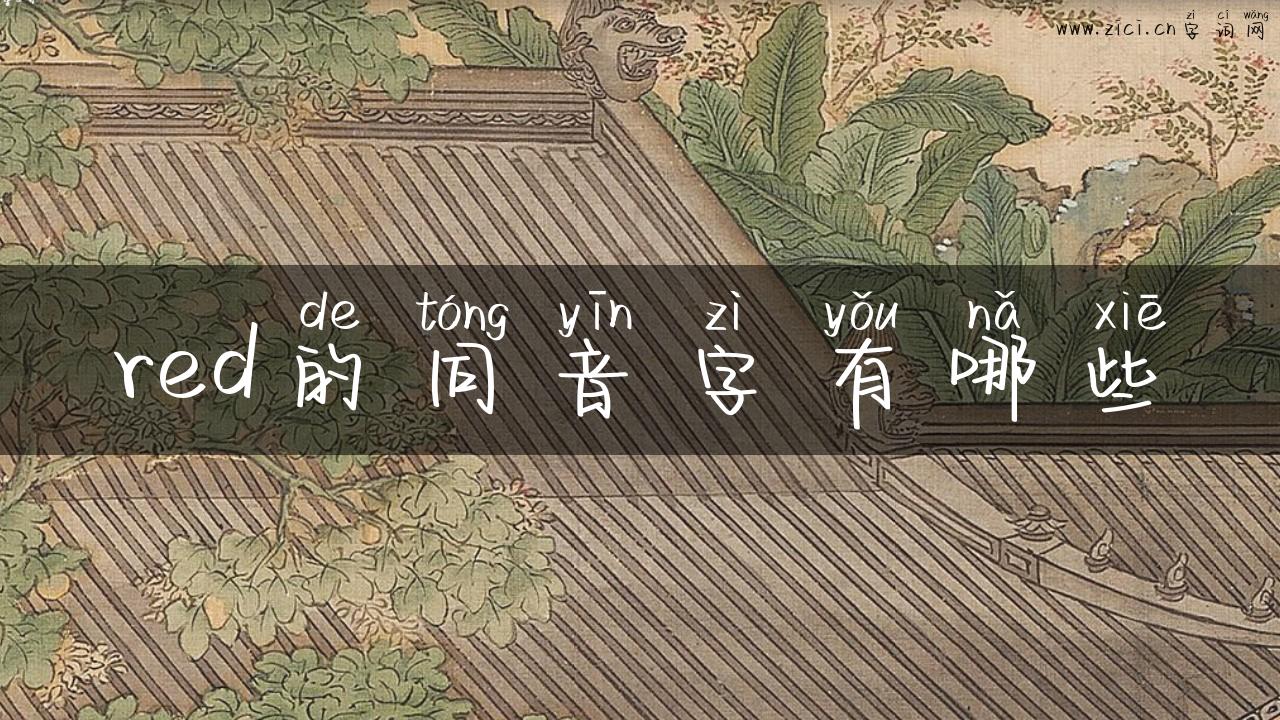 zì cí wǎng
www.zici.cn 字词网
de tóng yīn zì yǒu nǎ xiē
red的同音字有哪些